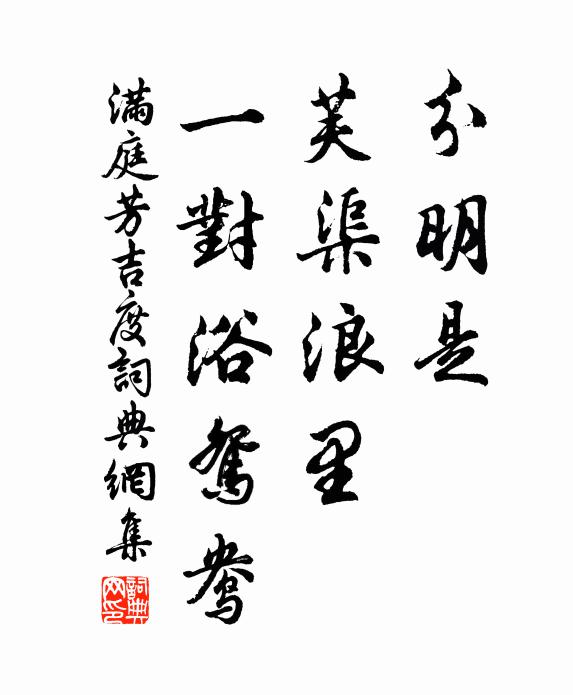 分明是
芙渠浪里
一對浴鴛鴦
滿庭芳吉度詞典網集
詞典
网印